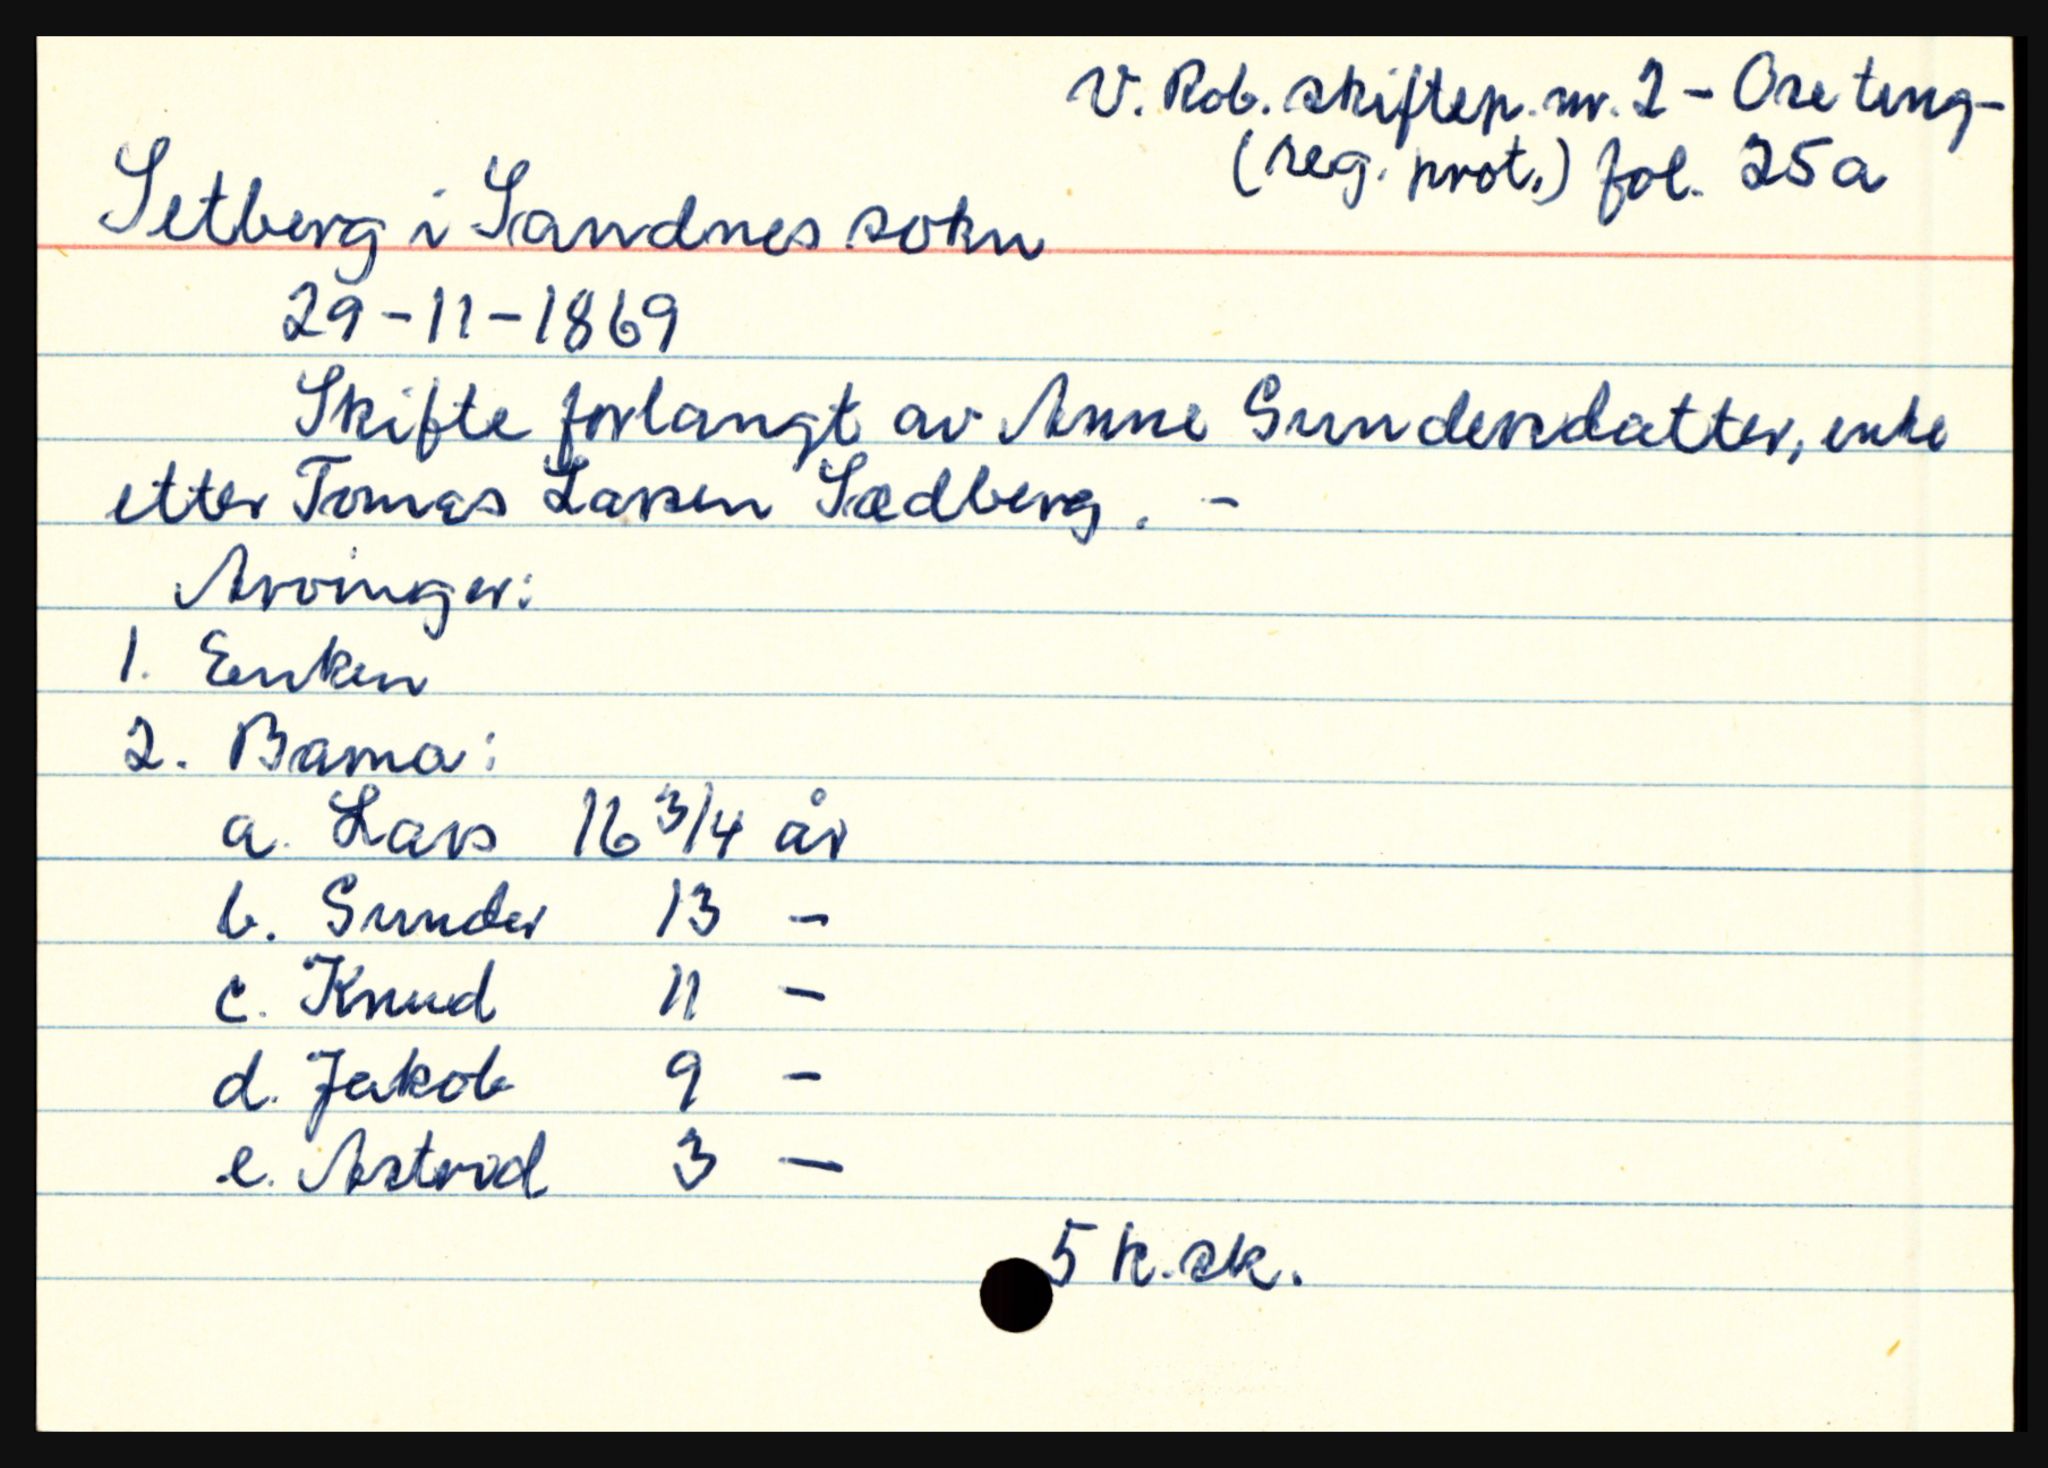 V. Rob. skiftep. nr. 2 - Ose ting-
(reg. prot.) fol. 25a
Setberg i Sandnes sokn
29-11-1869
Skifte forlangt av Anne Gundersdatter, enke
etter Tomas Larsen Sædberg. -
Arvinger:
1. Enken
2. Barna:
a. Lars 16 3/4 år
b. Gunder 13 -
c. Knud 11 -
d. Jakob 9 -
e. Astrid 3 -
5 k. sk.